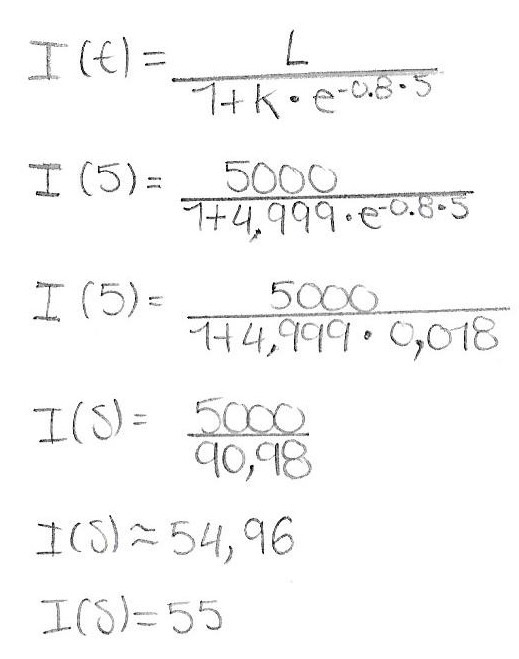 I(t) = L / 1+K·e^-0.8·5
I(5) = 5000 / 1+4,999·e^-0.8·5
I(5) = 5000 / 1+4,999·0,018
I(5) = 5000 / 90,98
I(5) ≈ 54,96
I(5) = 55